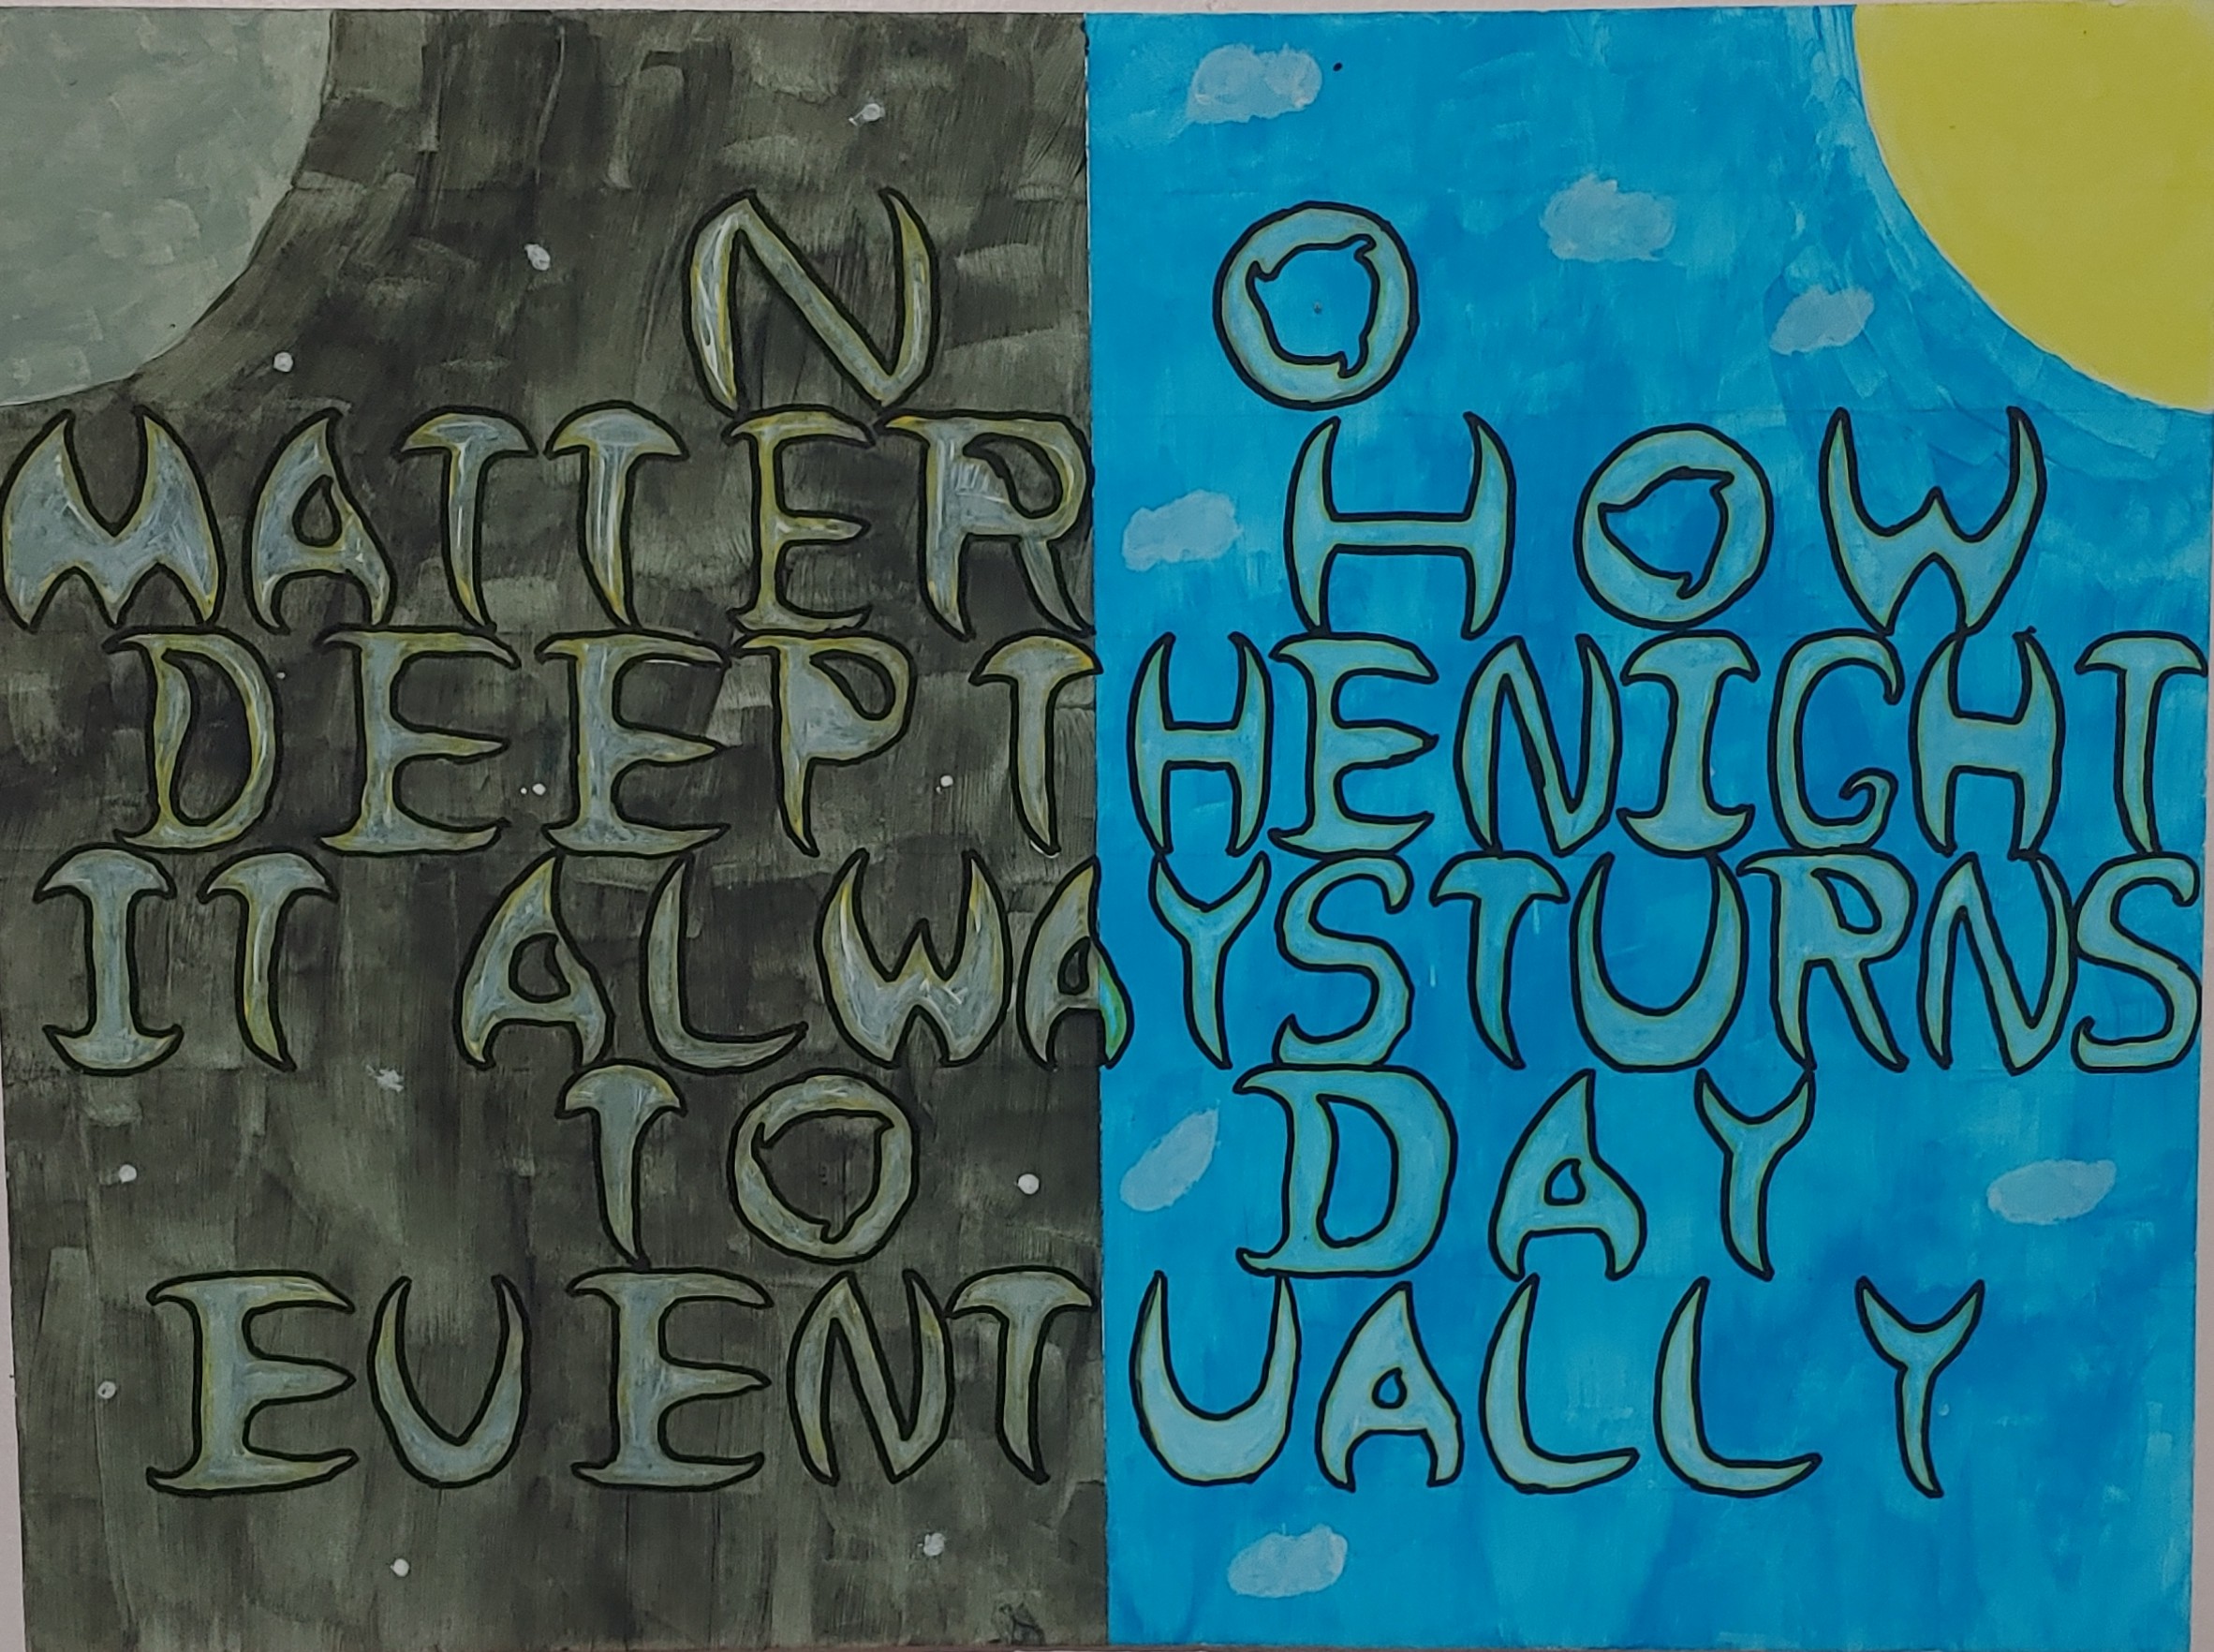 NO
MATTER HOW
DEEP THE NIGHT
IT ALWAYS TURNS
TO DAY
EVENTUALLY